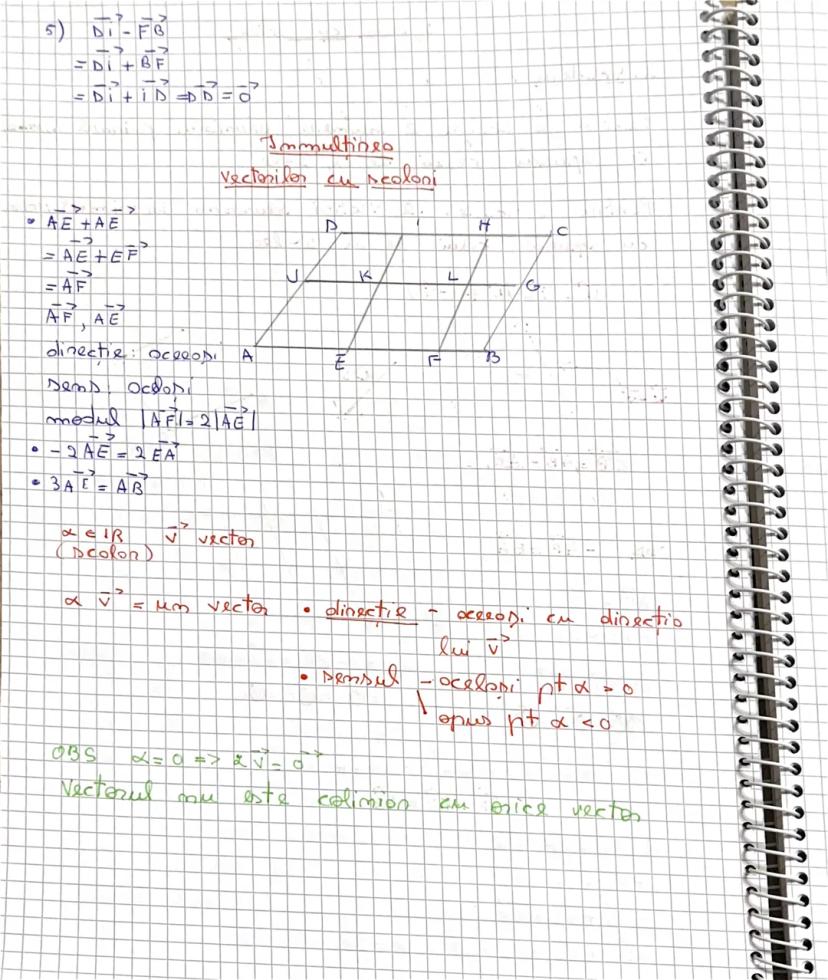 5) DI⃗ - FB⃗
= DI⃗ + BF⃗
= DI⃗ + ID⃗ = DD⃗ = 0⃗
Immulținea
vectorilor cu scalari
• AE⃗ + AE⃗
= AE⃗ + EF⃗
= AF⃗
AF⃗, AE⃗
direcție: aceeași
sens: același
modul |AF⃗| = 2|AE⃗|
• -2AE⃗ = 2EA⃗
• 3AE⃗ = AB⃗
D I H C
J K L G
A E F B
α ∈ IR v⃗ vector
(scalar)
α v⃗ = un vector • direcție - aceeași cu direcția
lui v⃗
• sensul - același pt α > 0
\ opus pt α < 0
OBS α = 0 => α v⃗ = 0⃗
Vectorul nu este coliniar cu orice vector